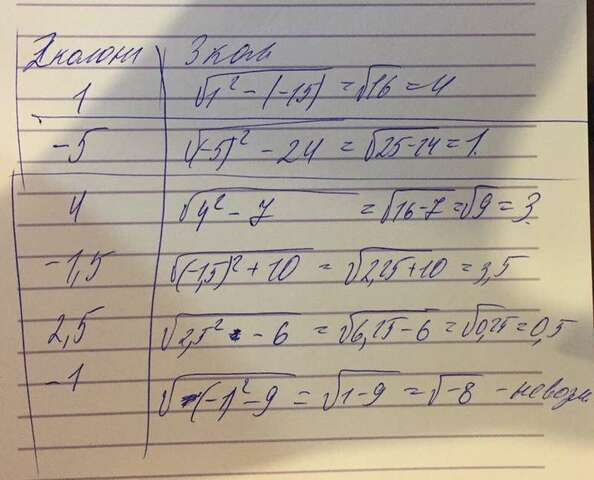 2колонк 3 кол
1 √1² - (-15) = √16 = 4
-5 √(-5)² - 24 = √25-24 = 1.
4 √4² - 7 = √16-7 = √9 = 3.
-1,5 √(-1,5)² + 10 = √2,25+10 = 3,5
2,5 √2,5² - 6 = √6,25-6 = √0,25 = 0,5
-1 √(-1)² - 9 = √1-9 = √-8 - невозм